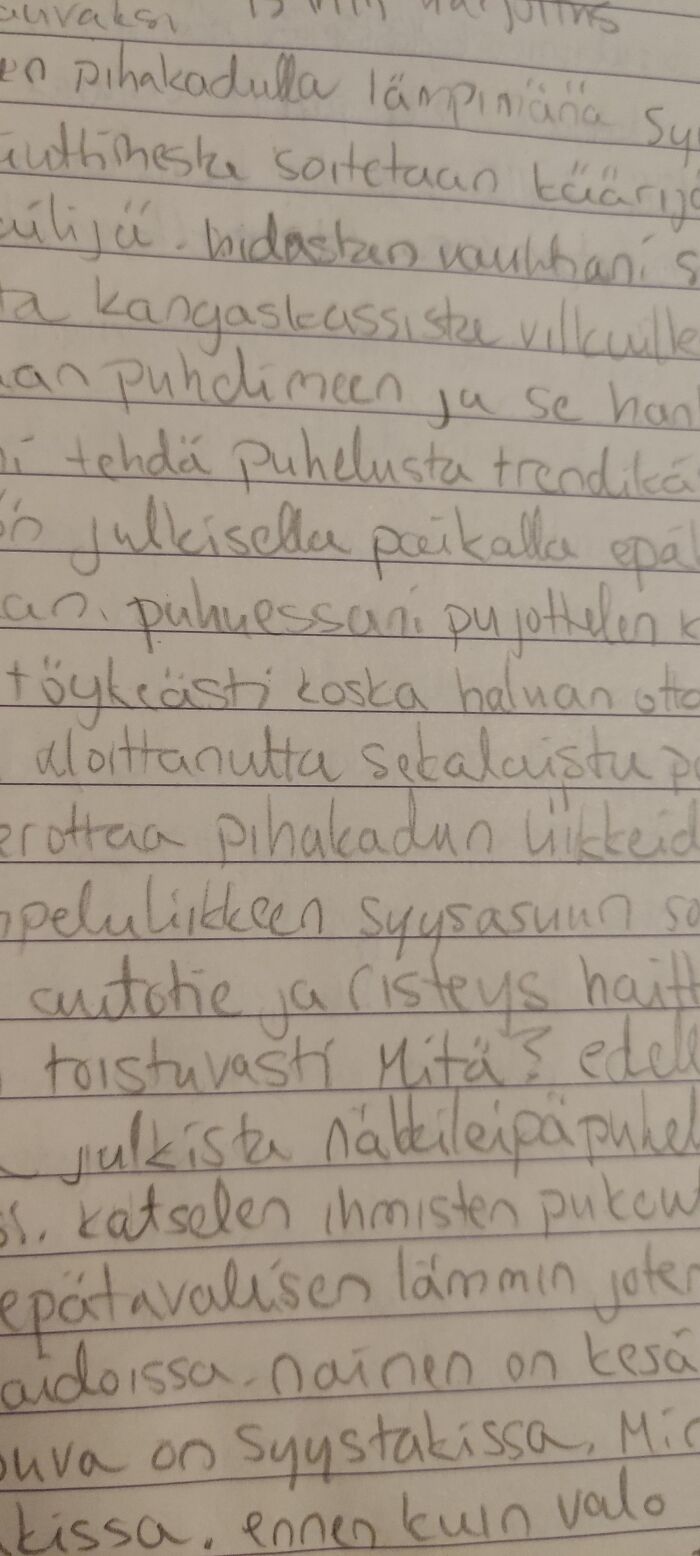 en pihakadulla lämpimänä sy
soitetaan käärij
äilijä. hidastan vauhtiani s
ta kangaskassista vilkuille
an puhelimeen ja se han
i tehdä puhelusta trendikä
julkisella paikalla epä
an. puhuessani pujottelen k
töykeästi koska haluan otta
aloittanutta sekalaista p
erottaa pihakadun liikkeid
peluliikkeen syysasuun so
autotie ja risteys haitt
toistuvasti Mitä? edell
julkista näkkileipäpuhel
si. katselen ihmisten pukeu
epätavallisen lämmin joten
aidoissa. nainen on kesä
ouva on syystakissa. Mi
kissa. ennen kuin valo